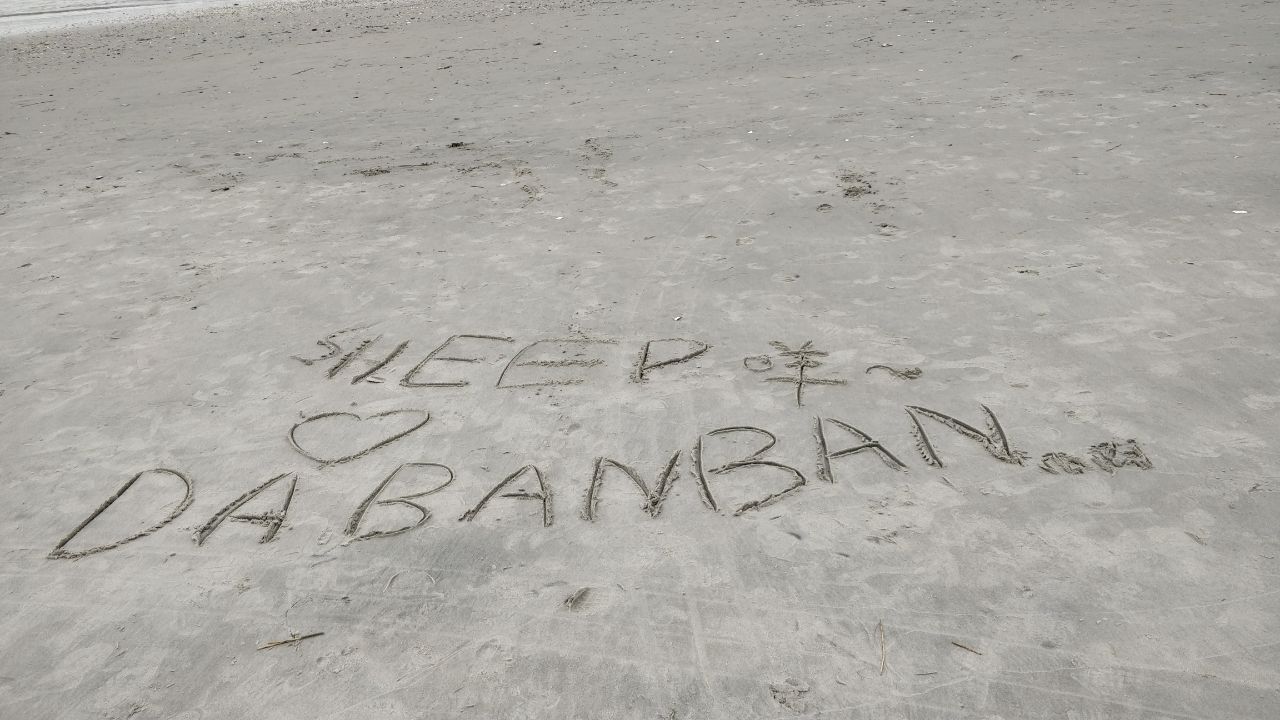 SHEEP 咩~
♡
DABANBAN